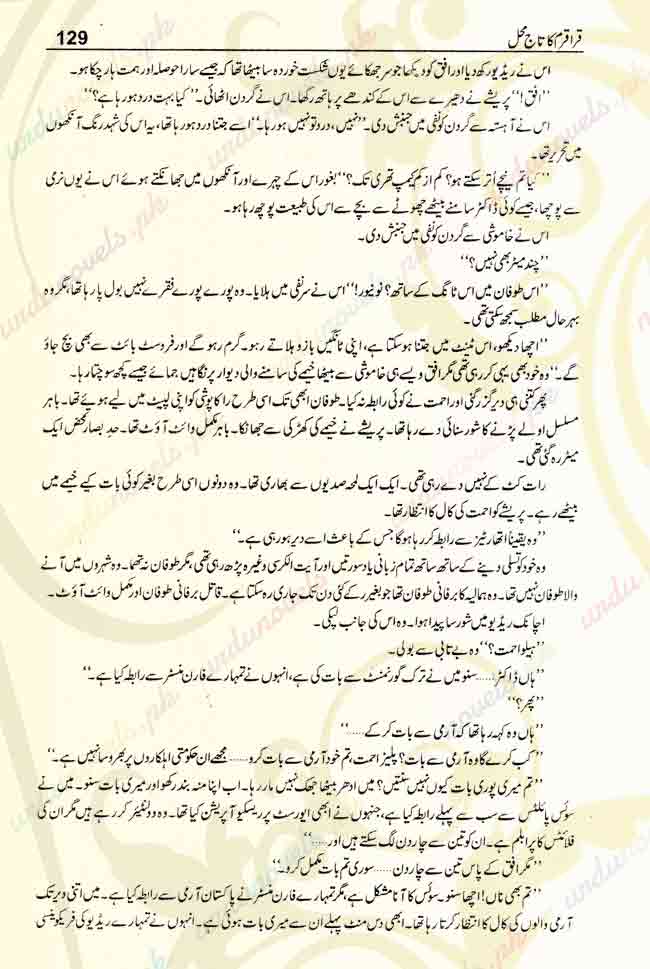 قراقرم کا تاج محل 129
اس نے ریڈیو رکھ دیا اور افق کو دیکھا جو سر جھکائے یوں شکست خوردہ سا بیٹھا تھا کہ جیسے سارا حوصلہ اور ہمت ہار چکا ہو۔
’’افق!‘‘ پریشے نے دھیرے سے اس کے کندھے پر ہاتھ رکھا۔ اس نے گردن اٹھائی۔ ’’کیا بہت درد ہو رہا ہے؟‘‘
اس نے آہستہ سے گردن کو نفی میں جنبش دی۔ ’’نہیں، درد تو نہیں ہو رہا۔‘‘ اسے جتنا درد ہو رہا تھا، یہ اس کی شہد رنگ آنکھوں
میں تحریر تھا۔
’’کیا تم نیچے اُتر سکتے ہو؟ کم از کم کیمپ تھری تک؟‘‘ بغور اس کے چہرے اور آنکھوں میں جھانکتے ہوئے اس نے یوں نرمی
سے پوچھا، جیسے کوئی ڈاکٹر سامنے بیٹھے چھوٹے سے بچے سے اس کی طبیعت پوچھ رہا ہو۔
اس نے خاموشی سے گردن کو نفی میں جنبش دی۔
’’چند میٹر بھی نہیں؟‘‘
’’اس طوفان میں اس ٹانگ کے ساتھ؟ نو نیور!‘‘ اس نے سر نفی میں ہلایا۔ وہ پورے پورے فقرے نہیں بول پا رہا تھا، مگر وہ
بہرحال مطلب سمجھ سکتی تھی۔
’’اچھا دیکھو، اس ٹینٹ میں جتنا ہو سکتا ہے، اپنی ٹانگیں بازو ہلاتے رہو۔ گرم رہو گے اور فروسٹ بائٹ سے بھی بچ جاؤ
گے۔‘‘ وہ خود بھی یہی کر رہی تھی مگر افق ویسے ہی خاموشی سے بیٹھا خیمے کی سامنے والی دیوار پر نگاہیں جمائے جیسے کچھ سوچتا رہا۔
پھر کتنی ہی دیر گزر گئی اور احمت نے کوئی رابطہ نہ کیا۔ طوفان ابھی تک اسی طرح راکاپوشی کو اپنی لپیٹ میں لیے ہوئے تھا۔ باہر
مسلسل اولے پڑنے کا شور سنائی دے رہا تھا۔ پریشے نے خیمے کی کھڑکی سے جھانکا۔ باہر مکمل وائٹ آؤٹ تھا۔ حدِ بصار محض ایک
میٹر رہ گئی تھی۔
رات کٹ کے نہیں دے رہی تھی۔ ایک ایک لمحہ صدیوں سے بھاری تھا۔ وہ دونوں اسی طرح بغیر کوئی بات کیے خیمے میں
بیٹھے رہے۔ پریشے کو احمت کی کال کا انتظار تھا۔
’’وہ یقیناً اتھارٹیز سے رابطہ کر رہا ہوگا جس کے باعث اسے دیر ہو رہی ہے۔‘‘
وہ خود کو تسلی دینے کے ساتھ ساتھ تمام زبانی یاد سورتیں اور آیت الکرسی وغیرہ پڑھ رہی تھی، مگر طوفان نہ تھما۔ وہ شہروں میں آنے
والا طوفان نہیں تھا۔ وہ ہمالیہ کا برفانی طوفان تھا جو بغیر رکے کئی دن تک جاری رہ سکتا ہے۔ قاتل برفانی طوفان اور مکمل وائٹ آؤٹ۔
اچانک ریڈیو میں شور سا پیدا ہوا۔ وہ اس کی جانب لپکی۔
’’ہیلو احمت؟‘‘ وہ بے تابی سے بولی۔
’’ہاں ڈاکٹر...... سنو میں نے ترک گورنمنٹ سے بات کی ہے، انہوں نے تمہارے فارن منسٹر سے رابطہ کیا ہے۔‘‘
’’پھر؟‘‘
’’ہاں وہ کہہ رہا تھا کہ آرمی سے بات کر کے......‘‘
’’کب کرے گا وہ آرمی سے بات؟ پلیز احمت، تم خود آرمی سے بات کرو...... مجھے ان حکومتی اہلکاروں پر بھروسا نہیں ہے۔‘‘
’’تم میری پوری بات کیوں نہیں سنتیں؟ میں ادھر بیٹھا جھک نہیں مار رہا۔ اب اپنا منہ بند رکھو اور میری بات سنو۔ میں نے
سوئس پائلٹس سے سب سے پہلے رابطہ کیا ہے، جنہوں نے ابھی ایورسٹ پر ریسکیو آپریشن کیا تھا۔ وہ والنٹیئر کر رہے ہیں مگر ان کی
فلائٹس کا پرابلم ہے۔ ان کو تین سے چار دن لگ سکتے ہیں اور......‘‘
’’مگر افق کے پاس تین سے چار دن...... سوری تم بات مکمل کرو۔‘‘
’’تم بھی ناں! اچھا سنو۔ سوئس کا آنا مشکل ہے، مگر تمہارے فارن منسٹر نے پاکستان آرمی سے رابطہ کیا ہے۔ میں اتنی دیر تک
آرمی والوں کی کال کا انتظار کرتا رہا تھا۔ ابھی دس منٹ پہلے ان سے میری بات ہوئی ہے۔ انہوں نے تمہارے ریڈیو کی فریکوئنسی
urdunovels.pk